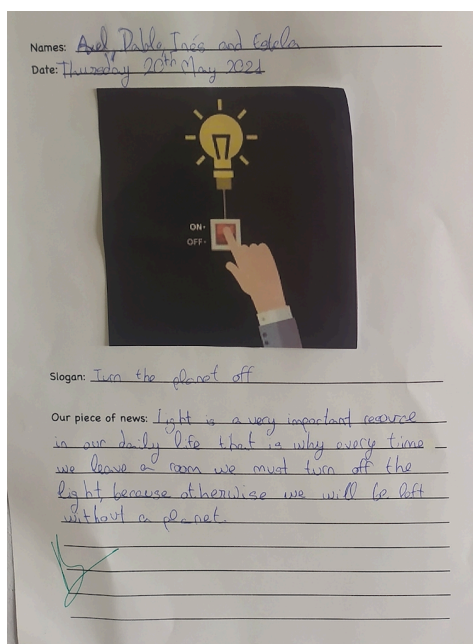 Names: Axel, Pablo, Inés and Estela
Date: Thursday 20th May 2021
ON
OFF
Slogan: Turn the planet off
Our piece of news: Light is a very important resource
in our daily life that is why every time
we leave a room we must turn off the
light, because otherwise we will be left
without a planet.